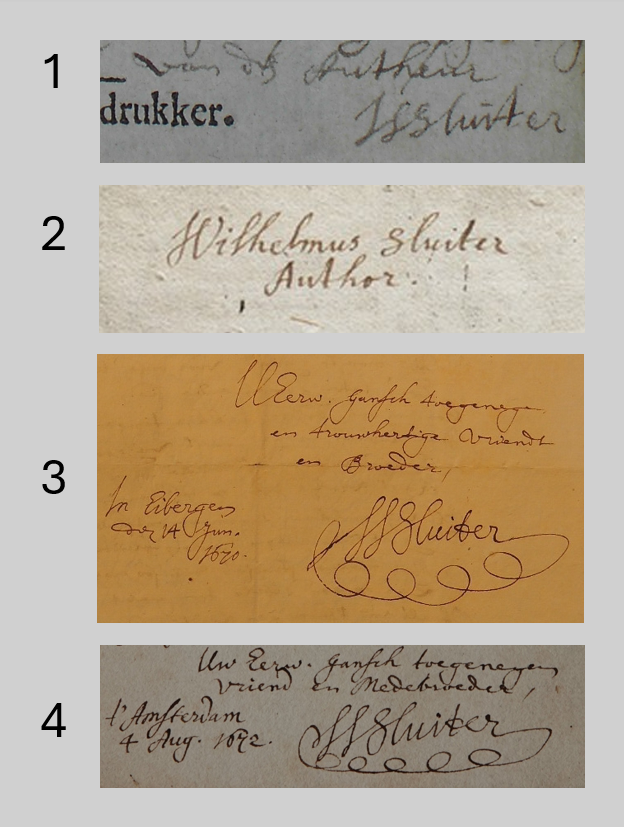 1
van de Autheur
drukker.
WSluiter
2
Wilhelmus Sluiter
Author.
3
UEerw. gansch toegenege
en trouwhertige Vriendt
en Broeder,
In Eibergen
den 14 Jun.
1670.
WSluiter
4
Uw Eerw. gansch toegenegen
vriend en Medebroeder,
t'Amsterdam
4 Aug. 1672.
WSluiter